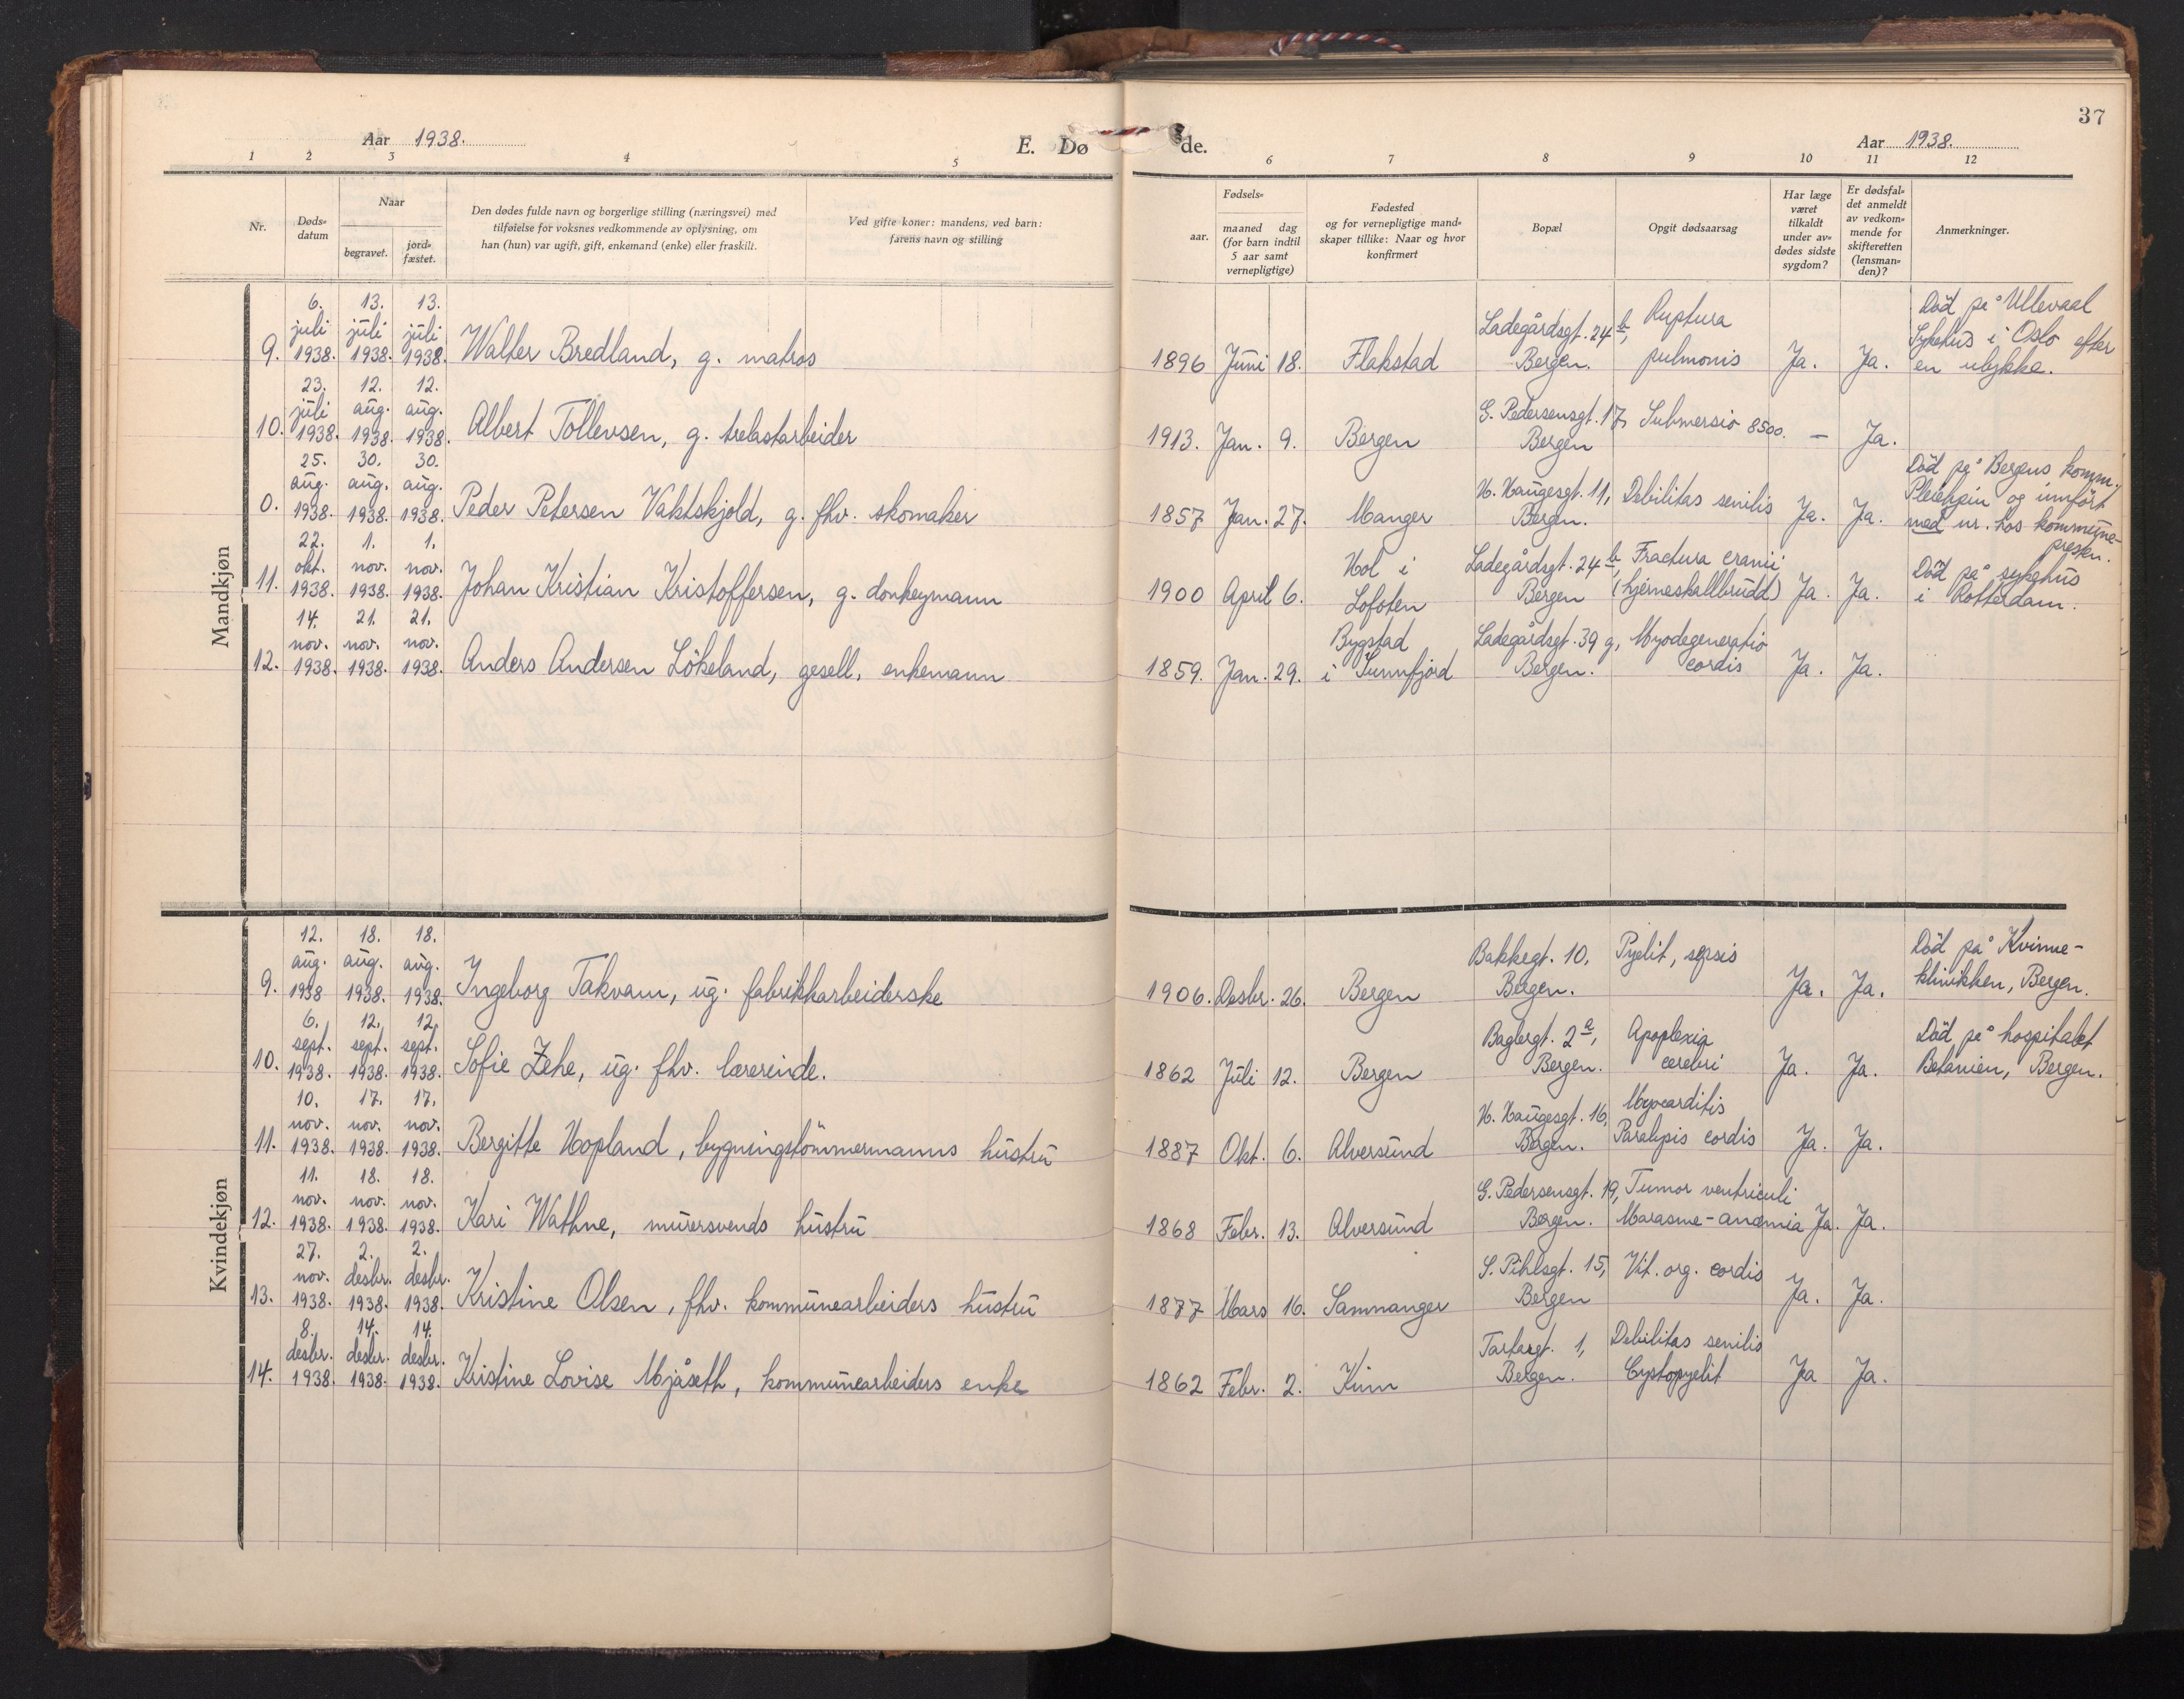 37
Aar 1938.
E. Dø de.
Aar 1938.
1 2 3 4 5 6 7 8 9 10 11 12
Nr.
Døds-
datum
Naar
begravet.
jord-
fæstet.
Den dødes fulde navn og borgerlige stilling (næringsvei) med
tilføielse for voksnes vedkommende av oplysning, om
han (hun) var ugift, gift, enkemand (enke) eller fraskilt.
Ved gifte koner: mandens, ved barn:
farens navn og stilling
Fødsels-
aar.
maaned dag
(for barn indtil
5 aar samt
vernepligtige)
Fødested
og for vernepligtige mand-
skaper tillike: Naar og hvor
konfirmert
Bopæl
Opgit dødsaarsag
Har læge
været
tilkaldt
under av-
dødes sidste
sygdom?
Er dødsfal-
det anmeldt
av vedkom-
mende for
skifteretten
(lensman-
den)?
Anmerkninger.
Mandkjøn
6. 13. 13.
juli juli juli
9. 1938. 1938. 1938. Walter Bredland, g. matros
1896 Juni 18. Flakstad
Ladegårdsgt. 24 b,
Bergen.
Ruptura
pulmonis
Ja. Ja.
Död på Ullevaal
Sykehus i Oslo efter
en ulykke.
23. 12. 12.
juli aug. aug.
10. 1938. 1938. 1938. Albert Tollevsen, g. trelastarbeider
1913. Jan. 9. Bergen
G. Pedersensgt. 17,
Bergen
Submersio 8500. — Ja.
25. 30. 30.
aug. aug. aug.
0. 1938. 1938. 1938. Peder Petersen Vaktskjold, g. fhv. skomaker
1857 Jan. 27. Manger
H. Haugesgt. 11,
Bergen.
Debilitas senilis Ja. Ja.
Död på Bergens komm.
Pleiehjem og innfört
med nr. hos kommune-
presten.
22. 1. 1.
okt. nov. nov.
11. 1938. 1938. 1938. Johan Kristian Kristoffersen, g. donkeymann
1900 April 6. Hol i
Lofoten
Ladegårdsgt. 24 b,
Bergen
Fractura cranii
(hjerneskallbrudd) Ja. Ja.
Död på sykehus
i Rotterdam.
14. 21. 21.
nov. nov. nov.
12. 1938. 1938. 1938. Anders Andersen Lökeland, gesell, enkemann
1859. Jan. 29. Bygstad
i Sunnfjord
Ladegårdsgt. 39 g,
Bergen.
Myodegeneratio
cordis
Ja. Ja.
Kvindekjøn
12. 18. 18.
aug. aug. aug.
9. 1938 1938. 1938. Ingeborg Takvam, ug. fabrikkarbeiderske
1906. Desbr. 26. Bergen
Bakkegt. 10,
Bergen.
Pyelit, sepsis
Ja. Ja.
Död på Kvinne-
klinikken, Bergen.
6. 12. 12.
sept. sept. sept.
10. 1938. 1938. 1938. Sofie Zehe, ug. fhv. lærerinde.
1862 Juli 12. Bergen
Baglergt. 2 a,
Bergen.
Apoplexia
cerebri
Ja. Ja.
Död på hospitalet
Betanien, Bergen.
10. 17. 17.
nov. nov. nov.
11. 1938. 1938. 1938. Bergitte Hopland, bygningstömmermanns hustru
1887 Okt. 6. Alversund
H. Haugesgt. 16,
Bergen.
Myocarditis
Paralysis cordis
Ja. Ja.
11. 18. 18.
nov. nov. nov.
12. 1938. 1938. 1938. Kari Wathne, murersvends hustru
1868 Febr. 13. Alversund
G. Pedersensgt. 19,
Bergen.
Tumor ventriculi
Marasme-anæmia Ja. Ja.
27. 2. 2.
nov. desbr. desbr.
13. 1938. 1938. 1938. Kristine Olsen, fhv. kommunearbeiders hustru
1877 Mars 16. Samnanger
S. Pihlsgt. 15,
Bergen
Vit. org. cordis
Ja. Ja.
8. 14. 14.
desbr. desbr. desbr.
14. 1938. 1938. 1938. Kristine Lovise Mjåseth, kommunearbeiders enke
1862 Febr. 2. Kinn
Tartargt. 1,
Bergen.
Debilitas senilis
Cystopyelit
Ja Ja.